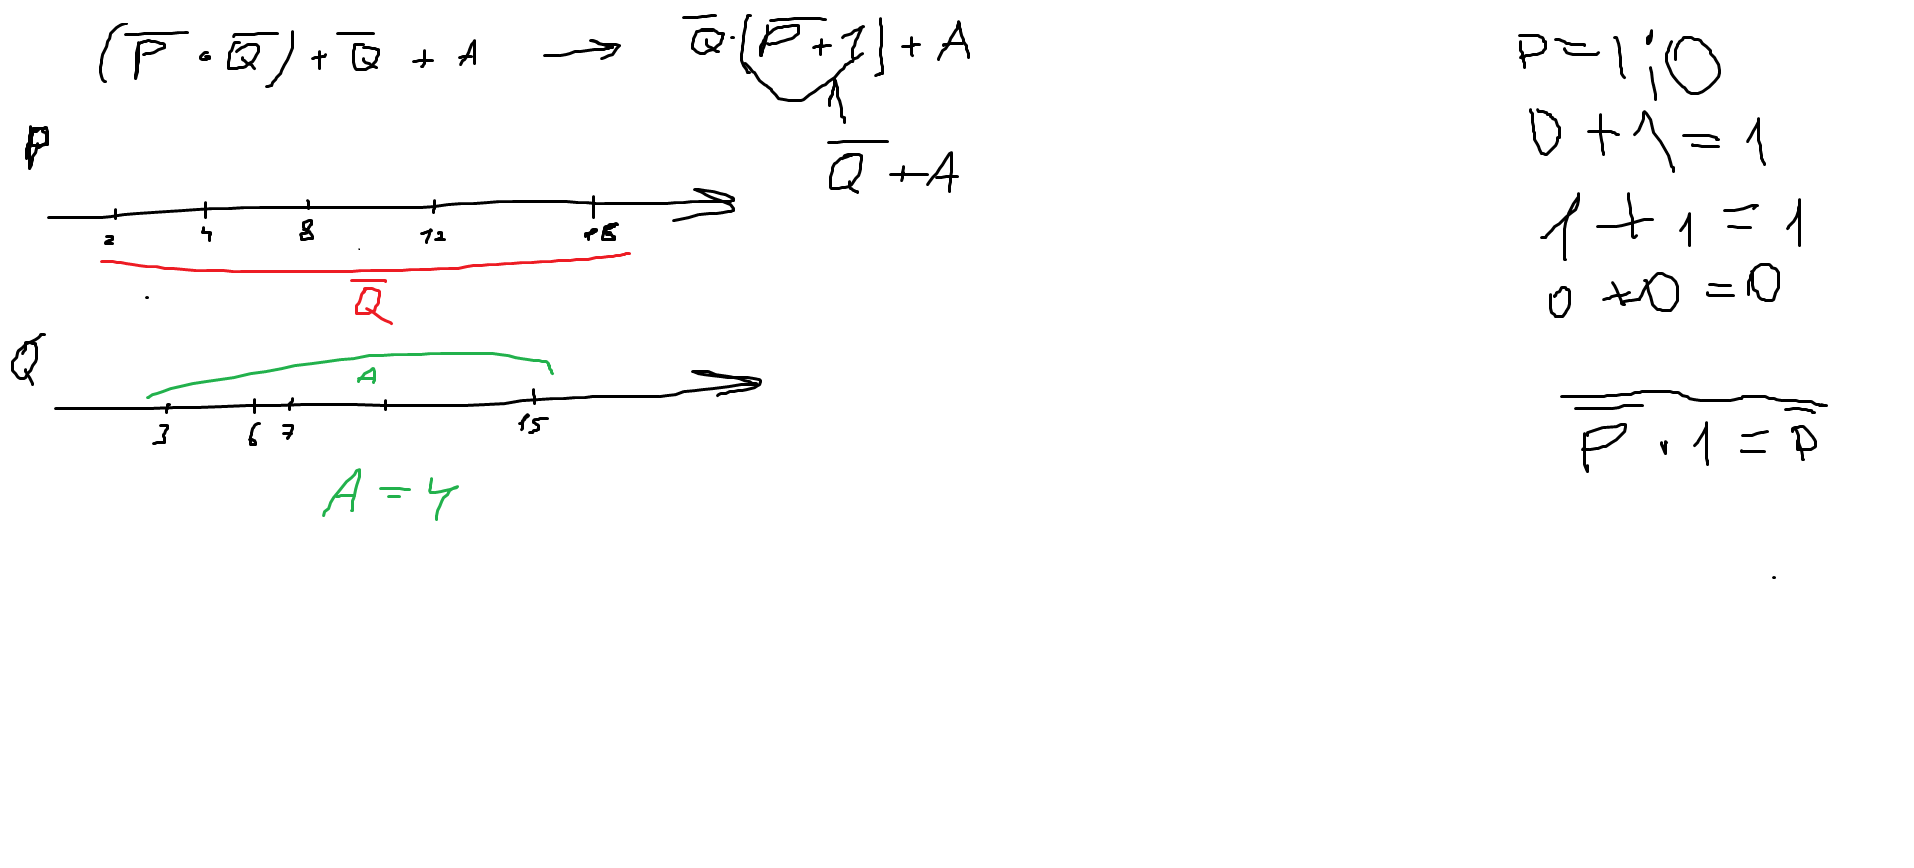 (P̅ · Q̅) + Q̅ + A → Q̅ · [P̅ + 1] + A
Q̅ + A
P
2 4 8 12
Q̅
Q
A
3 6 7 15
A = 4
P = 1 ; 0
0 + 1 = 1
1 + 1 = 1
0 + 0 = 0
P̅ · 1 = P̅